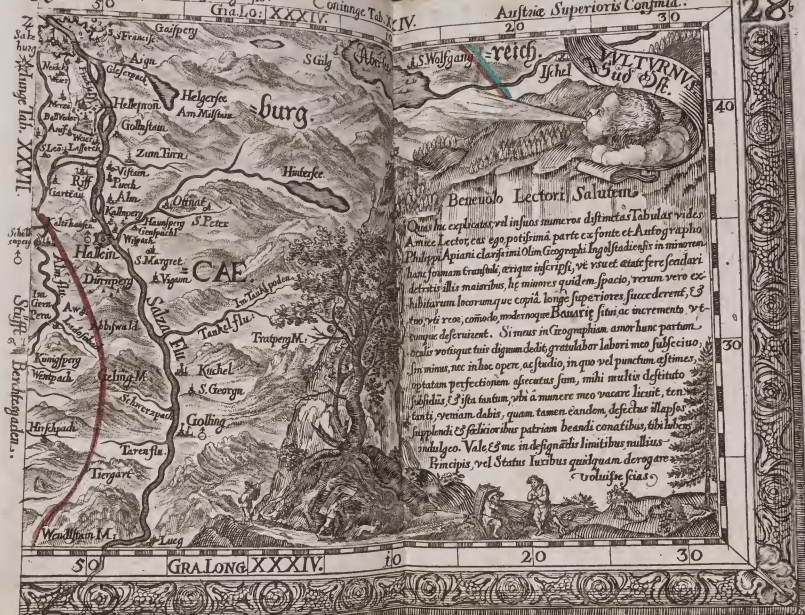 50
GRA.LO: XXXIV.
Coniunge Tab. XXIV.
Austriæ Superioris Confinia.
20
30
28
Salzburg
S Francisc
Gaisperg
Aign
Glasenpach
S Gilg
S. Wolfgang
=reich.
Ischel
VULTURNUS
Süd Ost.
40
Helgersee
Am Milstain
=burg.
Hellepron
Golnstain
Zum Turn
Riff
Vistain
Purch
Alm
Kalmperg
Haunsperg
Genspachl
Wispach
Hintersee
Ofinat
S. Peter
Hallein
Dürnperg
S. Margret
Vigaun
=CAE
Im Taukl poden
Taukel flu.
Alm flu
Salzai Flu
Abbtswald
Tratperg M.
Kunigsperg
Weutpach
Geling M.
Kuchel
S. Georgn
Schwerzpach
Golling
Hirschpach
Taren flu.
Tiergart
Wendlstain M.
Lueg
Coniunge Tab. XXVII.
Stifft Berchtsgaden.
Benevolo Lectori Salutem
Quas hic explicatas, vel in suos numeros distinctas Tabulas vides
Amice Lector, eas ego, potissimâ parte ex fonte et Autographo
Philippi Apiani clarissimi Olim Geographi Ingolstadiensis in minorem
hanc formam transtuli, ærique inscripsi, vt vsu et ætate fere secundari
detritis illis maioribus, hę minores quidem spacio, rerum vero ex=
hibitarum locorumque copiâ longe superiores, succederent, &
tuo, vti reor, comodo, modernoque Bavariæ situi, ac incremento vt=
cunque deseruirent. Si meus in Geographiam amor hunc partum
oculis votisque tuis dignum dedit, gratulabor labori meo subsecivo,
sin minus, nec in hoc opere, ac studio, in quo vel punctum æstimes,
optatam perfectionem assecutus sum, mihi multis destituto
subsidiis, & ista tantum, vbi a munere meo vacare licuit, ten
tanti, veniam dabis, quam tamen eandem, defectus illapsos
supplendi & fœlicioribus patriam beandi conatibus, tibi lubens
indulgeo. Vale, & me in designatis limitibus nullius
Principis, vel Status Iuribus quidquam derogare
voluisse scias
30
50
GRA. LONG. XXXIV.
10
20
30